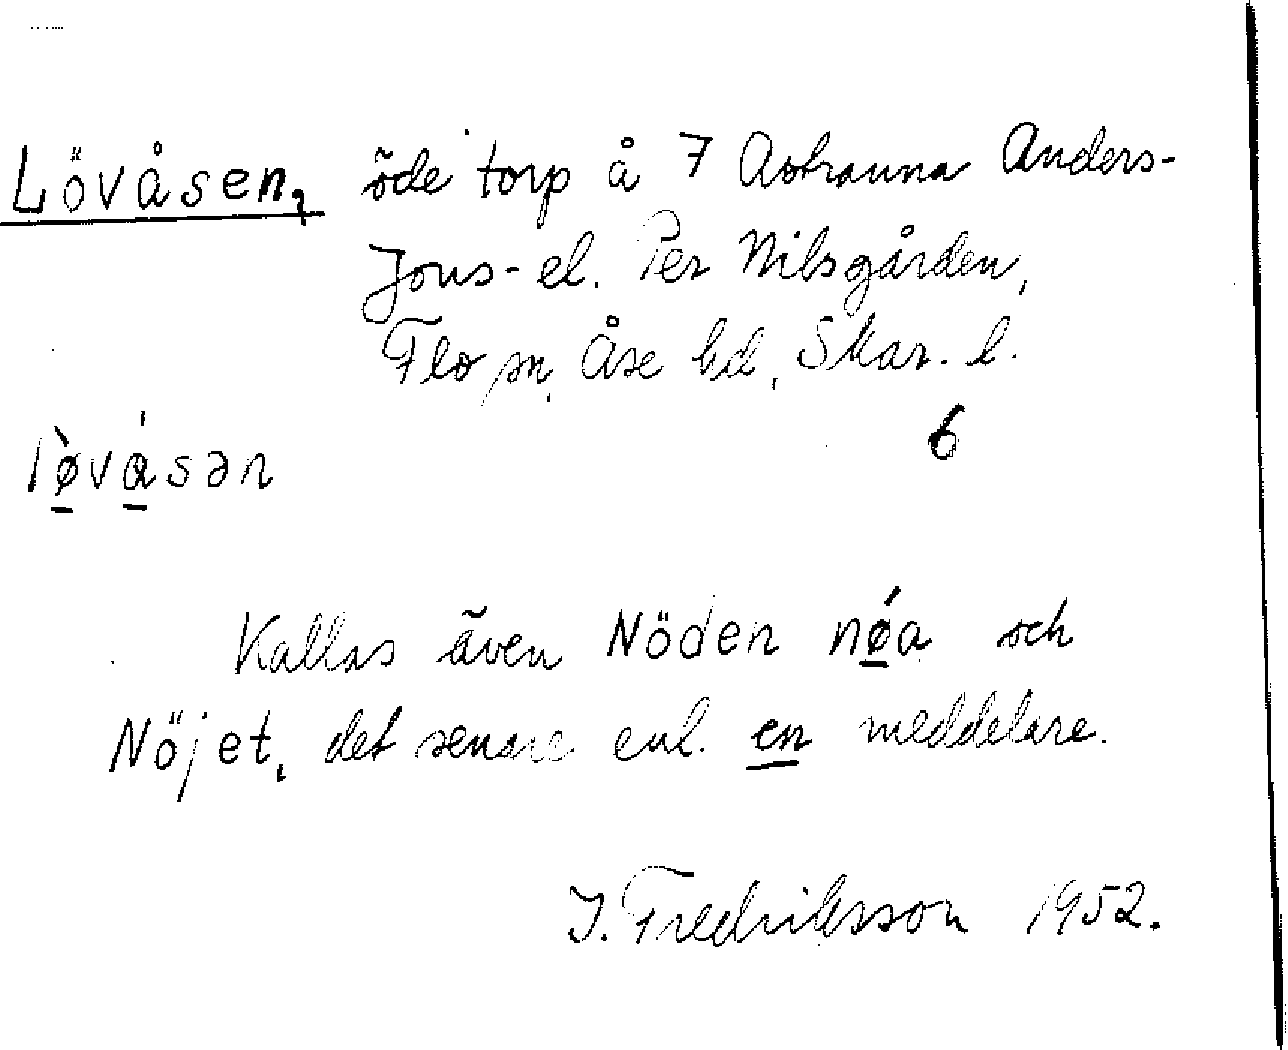 Lövåsen, öde torp å 7 Åstranna Anders-
Jons- el. Per Nilsgården,
Flo sn, Åse hd, Skar. l.
6
lø̀vásən
Kallas även Nöden nǿa och
Nöjet, det senare enl. en meddelare.
I. Fredriksson 1952.